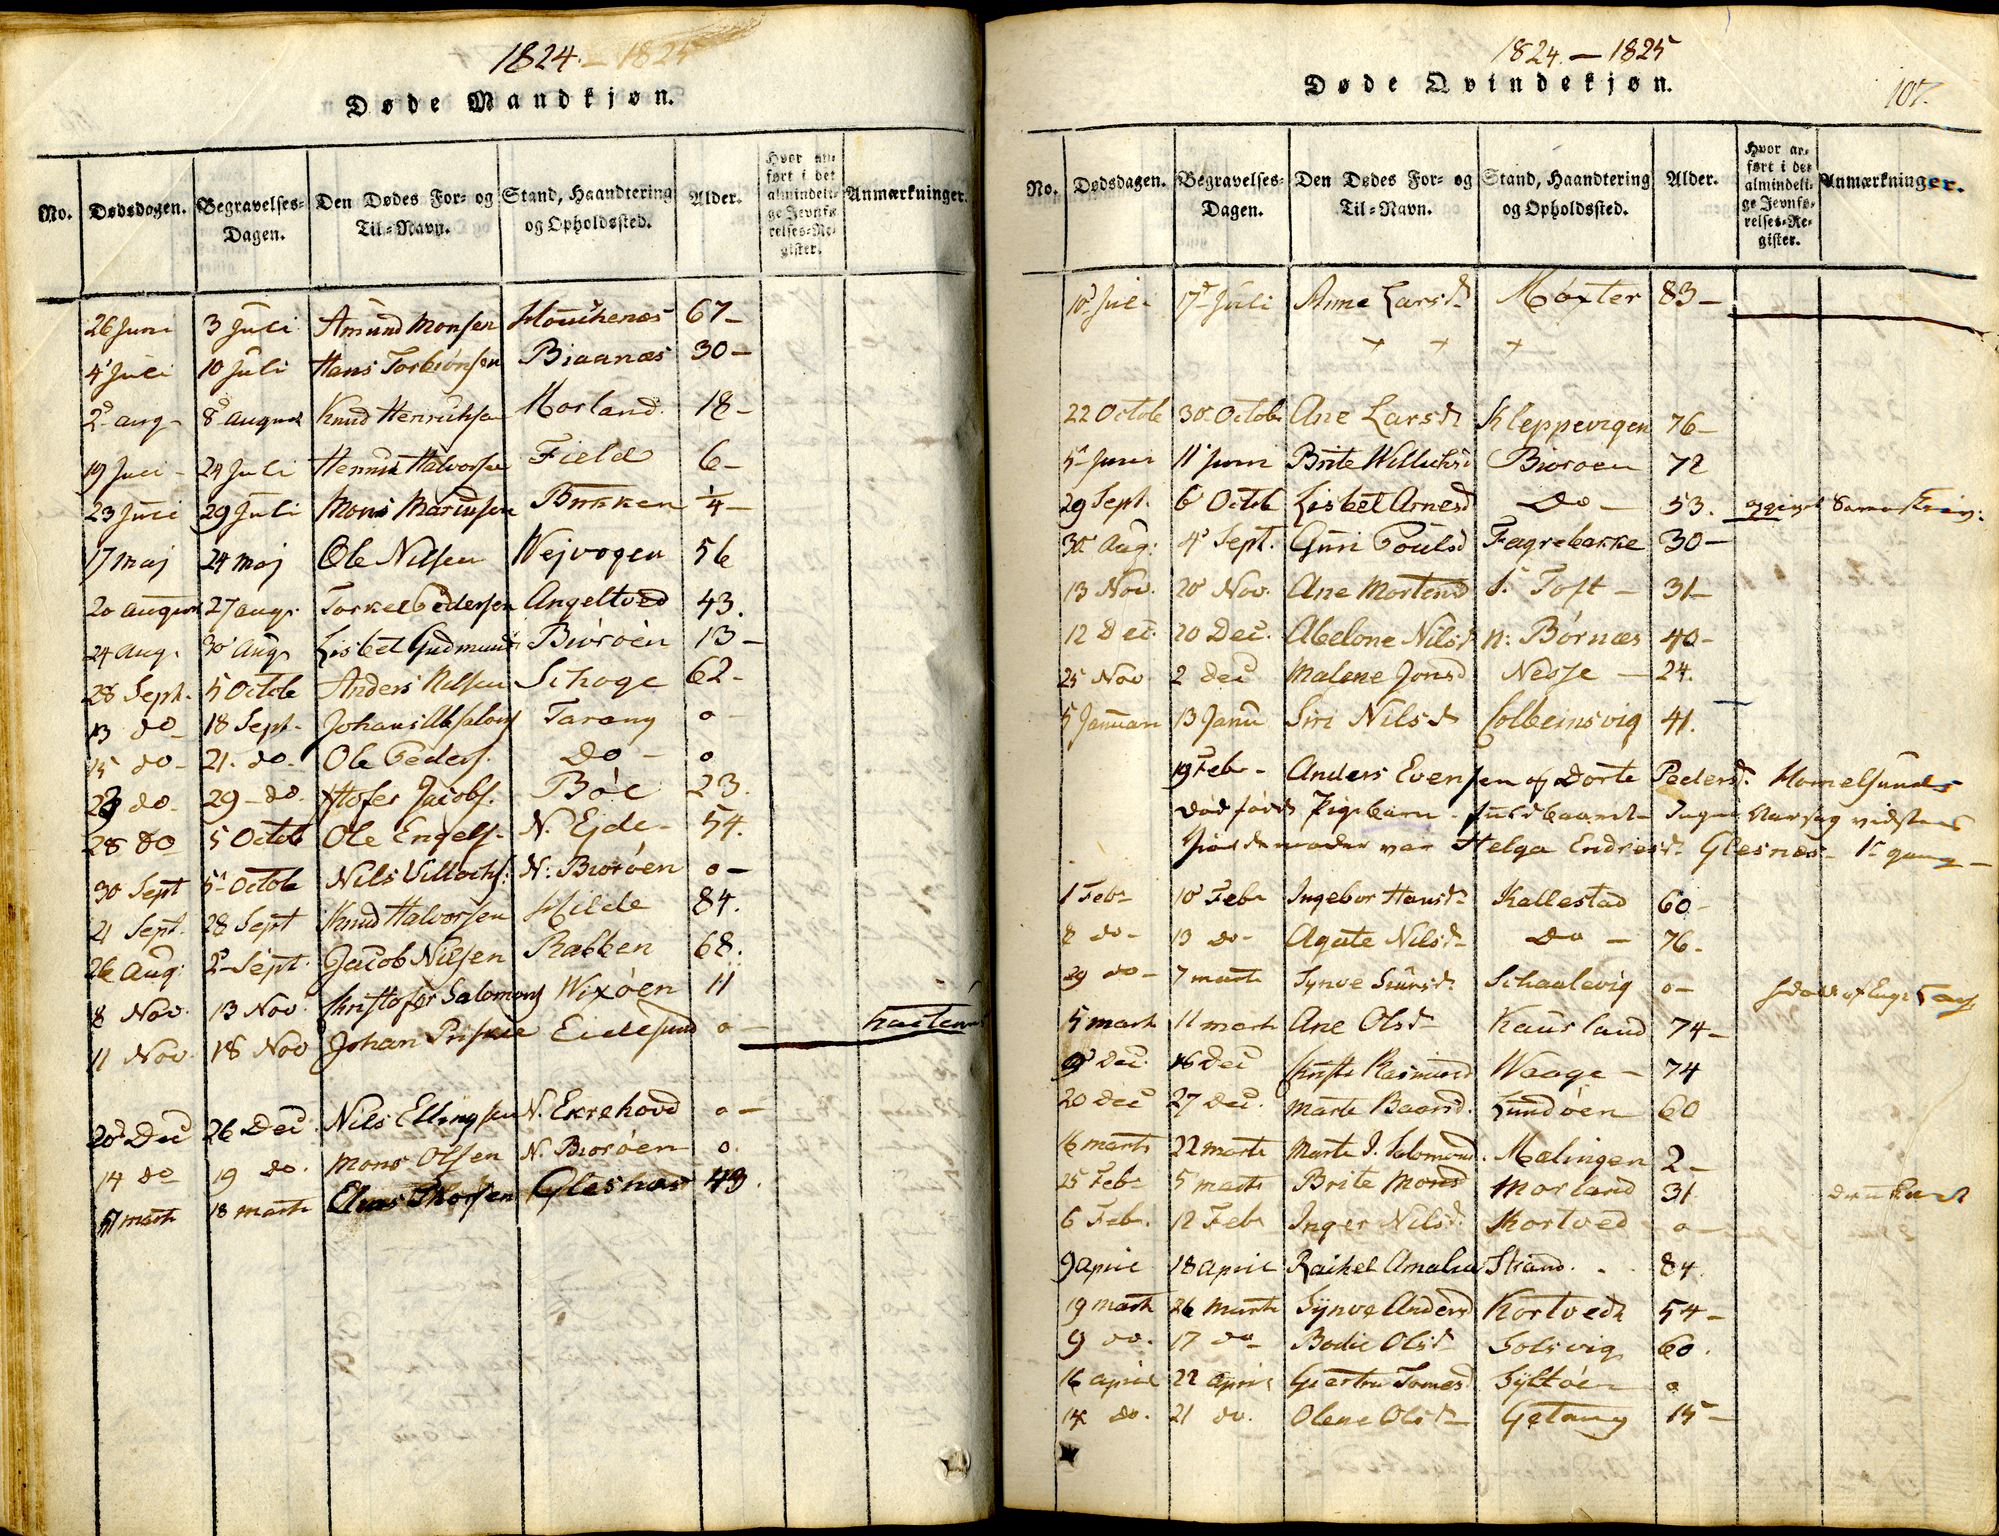 1824. – 1825
Døde Mandkjøn.
No. Dødsdagen. Begravelses-Dagen. Den Dødes For- og Til-Navn. Stand, Haandtering og Opholdssted. Alder. Hvor anført i det almindelige Jevnførelses-Register. Anmærkninger.
26 Juni 3 Juli Amund Monsen 67–
4 Juli 10 Juli Hans Torbiønsen Biaanæs 30–
2 aug 8 august Knud Henrichsen Morland 18–
19 Juli 24 Juli Halvorsen Field 6–
23 Juli 29 Juli Mons Bekken 1/4–
17 maj 24 maj Ole Nilsen Wejvogen 56
20 august 27 aug. Torkel Pedersen Angeltved 43.
24 aug. 30 Aug Lisbet Gudmunds Biørøen 13–
28 Sept. 5 Octob Anders Nilsen Schoge 62–
13 do 18 Sept. Johans Absalons Tarang 0–
15 do 21. do. Ole Peders. Do – 0
23 do 29 do. Jacobs. Bøe 23.
28 do 5 Octob Ole Engels. N. Ejde 54.
30 Sept 5 Octob Nils Villochs: N: Biorøen 0–
21 Sept. 28 Sept Knud Halvorsen Hilde 84.
26 Aug: 2 Sept. Jacob Nilsen Rabben 68.
8 Nov. 13 Nov. Kristofer Salomons Wixøen 11
11 Nov. 18 Nov Johan Eidesund 0–
20 Dec 26 Dec. Nils Ellingsen N. Ekrehovd 0–
14 do 19 do. Mons Olsen N. Biorøen 0.
17 marti 18 marti Glesnæs 43.
1824. – 1825
Døde Qvindekjøn.
107.
No. Dødsdagen. Begravelses-Dagen. Den Dødes For- og Til-Navn. Stand, Haandtering og Opholdssted. Alder. Hvor anført i det almindelige Jevnførelses-Register. Anmærkninger.
10 Juli 17 Juli Anne Larsd. Møxter 83–
+ + +
22 Octob 30 Octob Ane Larsd. Kleppevigen 76–
5 Juni 11 Juni Brite Willichsd Biorøen 72
29 Sept. 6 Octob Lisbet Arnesd Do – 53.
30 Aug: 4 Sept. Guri Poulsd Fagrebakke 30–
13 Nov. 20 Nov. Ane Mortensd S. Toft – 31–
12 Dec. 20 Dec. Abelone Nilsd N: Børnæs 40–
25 Nov 2 Dec Malene Jonsd Nesse – 24.
5 Januari 13 Janu Siri Nilsd Colbeinsvig 41.
19 Feb – Anders Evensen og Dorte Pedersd. Homelsund
dødfødt Pigebarn
Jordemoder var Helga Endresd. Glesnæs – 1 gang –
1 Feb 10 Feb Ingebor Hansd. Kallestad 60–
8 do – 13 do – Agate Nilsd Do – 76–
29 do – 7 marti Synve Siursd. Schaalevig 0–
5 marti 11 marti Ane Olsd Kausland 74–
9 Dec. 16 Dec Rasmusd Waage – 74
20 Dec 27 Dec. Marte Baarsd. Lundøen 60
16 marti 22 marti Marte J. Salomons. Mælingen 2–
25 Feb 5 marti Brite Monsd Morland 31 druknet
6 Feb. 12 Feb Inger Nilsd. Kortved – 0–
9 April 18 April Rachel Amalia Strand. 84.
19 marti 26 Marti Synve Andersd Kortvedt 54–
9 do. 17 do Bodil Olsd Solsvig 60.
16 april 22 April Giertru Tomesd Syltøen 0
14 do. 21 do. Olene Olsd Gøtang 15–